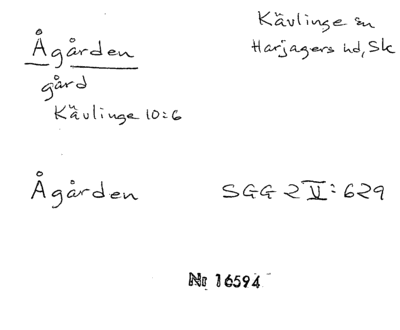 Ågården
Kävlinge sn
Harjagers hd, Sk
gård
Kävlinge 10:6
Ågården SGG 2 V: 629
Nr 16594